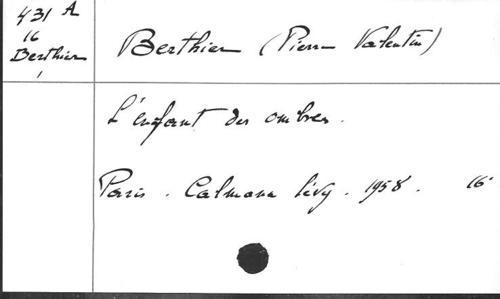 431 A
16
Berthier
1
Berthier (Pierre Valentin)
L'enfant des ombres.
Paris. Calmann Lévy. 1958. 16